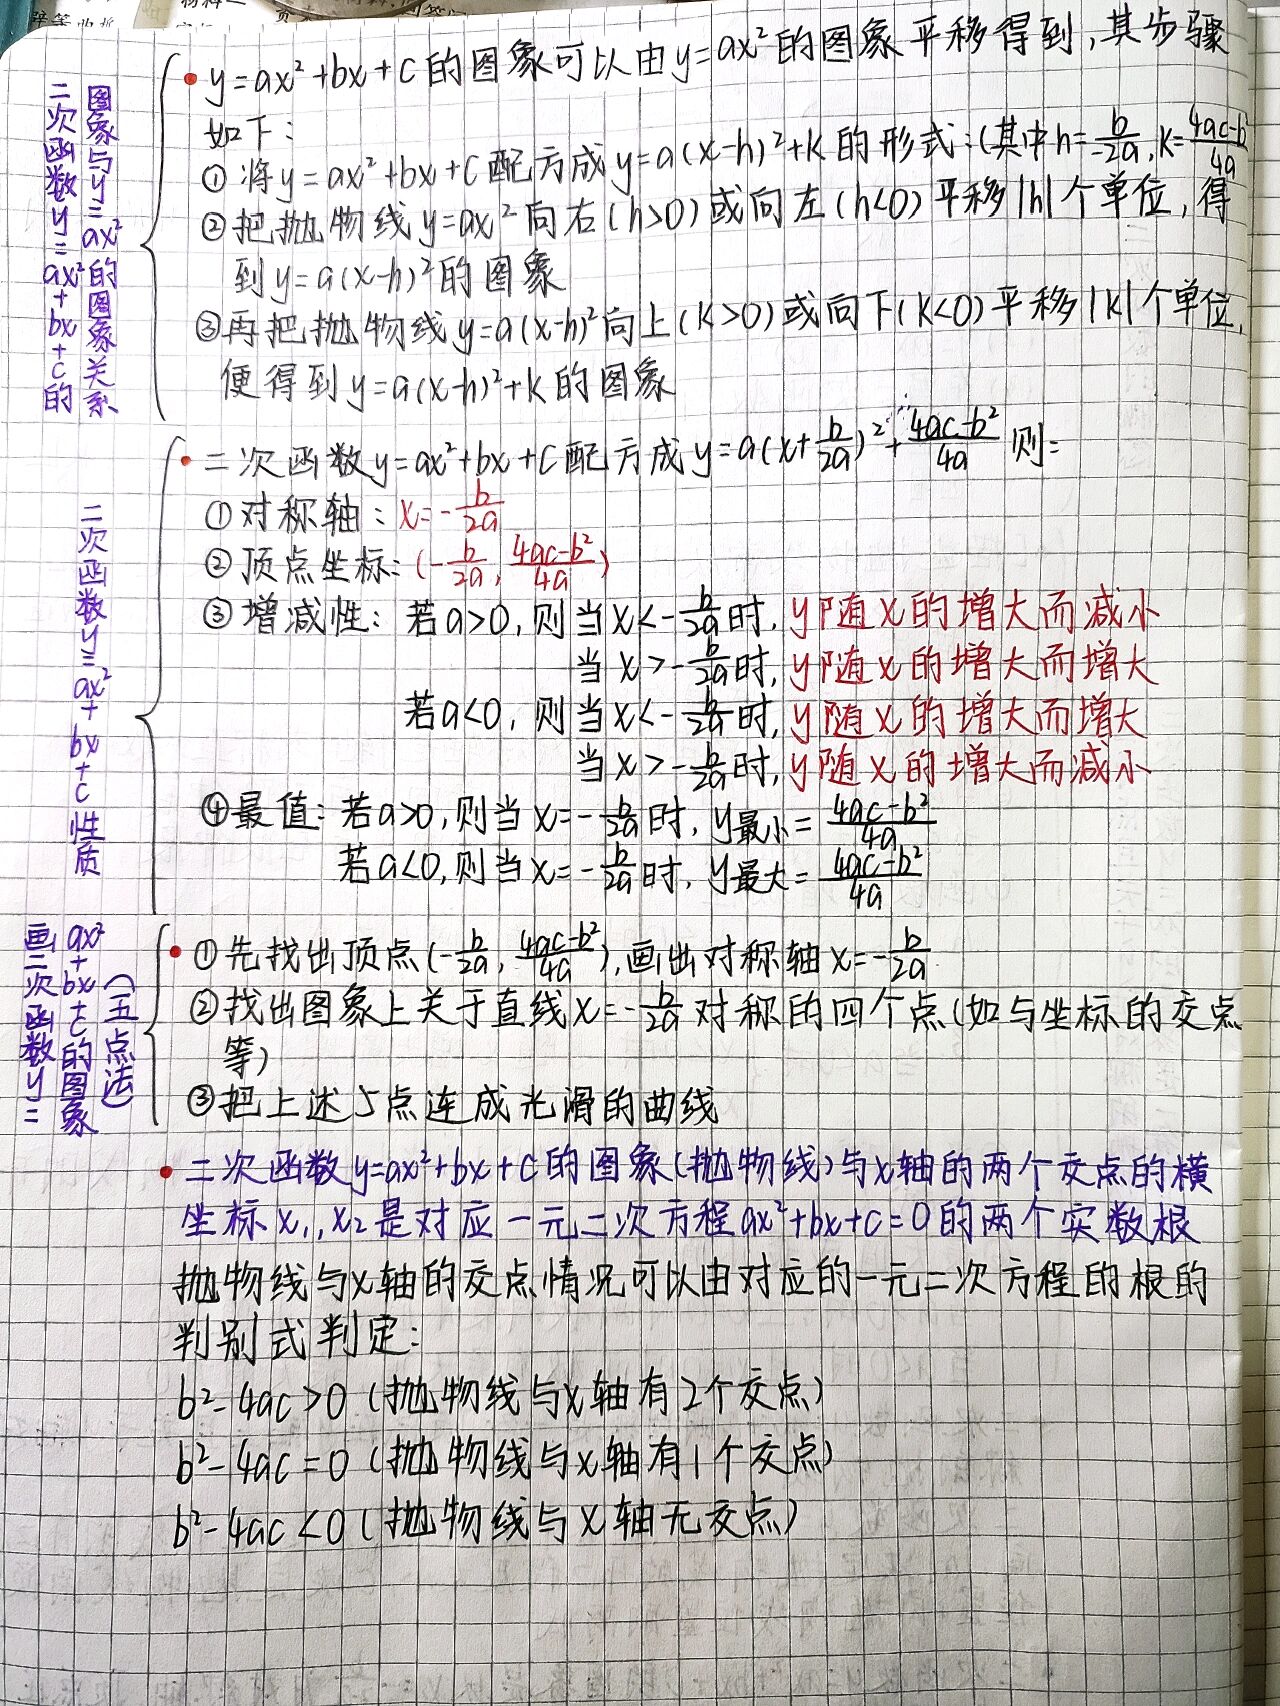 二次函数y=ax²+bx+c的
图象与y=ax²的图象关系
• y=ax²+bx+c的图象可以由y=ax²的图象平移得到,其步骤
如下:
①将y=ax²+bx+c配方成y=a(x-h)²+k的形式:(其中h=b/-2a,k=4ac-b²/4a
②把抛物线y=ax²向右(h>0)或向左(h<0)平移|h|个单位,得
到y=a(x-h)²的图象
③再把抛物线y=a(x-h)²向上(k>0)或向下(k<0)平移|k|个单位,
便得到y=a(x-h)²+k的图象
二次函数y=ax²+bx+c性质
• 二次函数y=ax²+bx+c配方成y=a(x+b/2a)²+4ac-b²/4a 则:
①对称轴:x=-b/2a
②顶点坐标:(-b/2a,4ac-b²/4a)
③增减性:若a>0,则当x<-b/2a时,y随x的增大而减小
当x>-b/2a时,y随x的增大而增大
若a<0,则当x<-b/2a时,y随x的增大而增大
当x>-b/2a时,y随x的增大而减小
④最值:若a>0,则当x=-b/2a时,y最小=4ac-b²/4a
若a<0,则当x=-b/2a时,y最大=4ac-b²/4a
画二次函数y=
ax²+bx+c的图象
(五点法)
• ①先找出顶点(-b/2a,4ac-b²/4a),画出对称轴x=-b/2a
②找出图象上关于直线x=-b/2a对称的四个点(如与坐标的交点
等)
③把上述5点连成光滑的曲线
• 二次函数y=ax²+bx+c的图象(抛物线)与x轴的两个交点的横
坐标x₁,x₂是对应一元二次方程ax²+bx+c=0的两个实数根
抛物线与x轴的交点情况可以由对应的一元二次方程的根的
判别式判定:
b²-4ac>0(抛物线与x轴有2个交点)
b²-4ac=0(抛物线与x轴有1个交点)
b²-4ac<0(抛物线与x轴无交点)